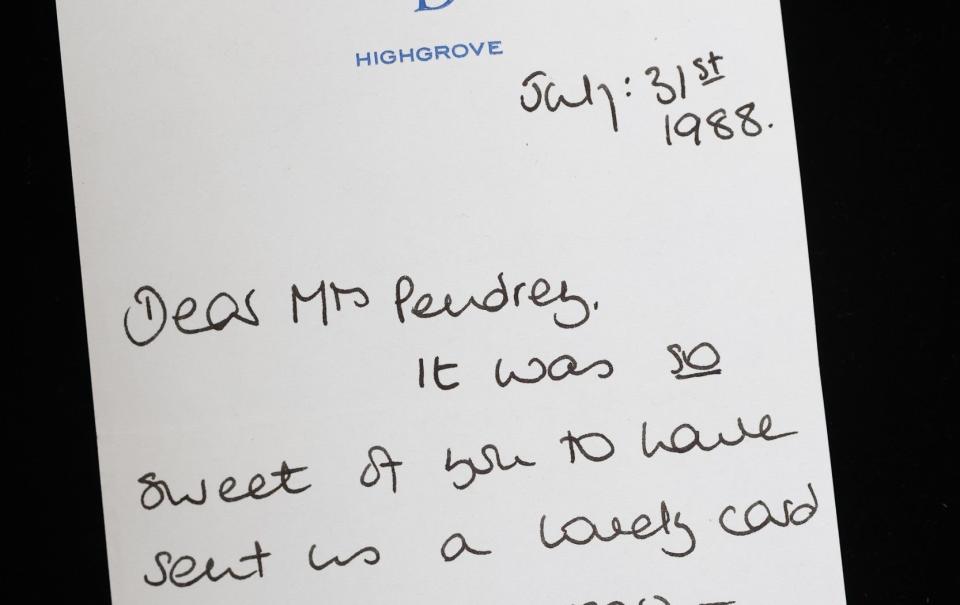 HIGHGROVE
July: 31st
1988.
Dear Mrs Pendrey.
It was so
sweet of you to have
sent us a lovely card